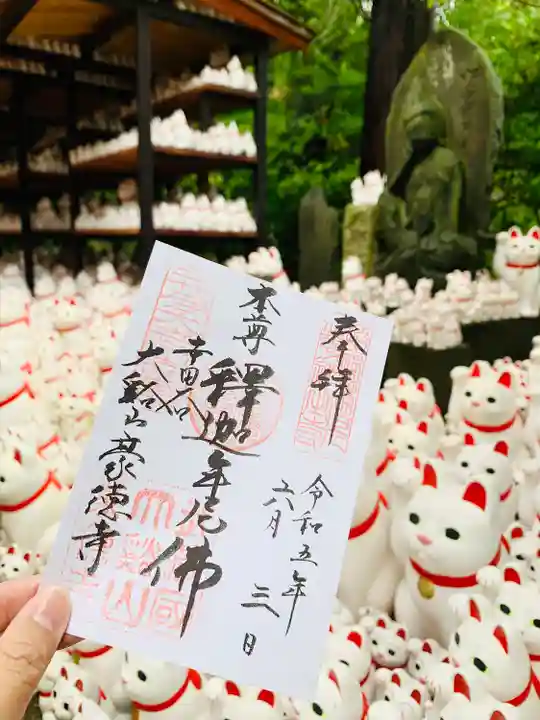 奉拝
令和五年
六月 三日
本尊
釋迦牟尼佛
世田谷
大谿山豪德寺